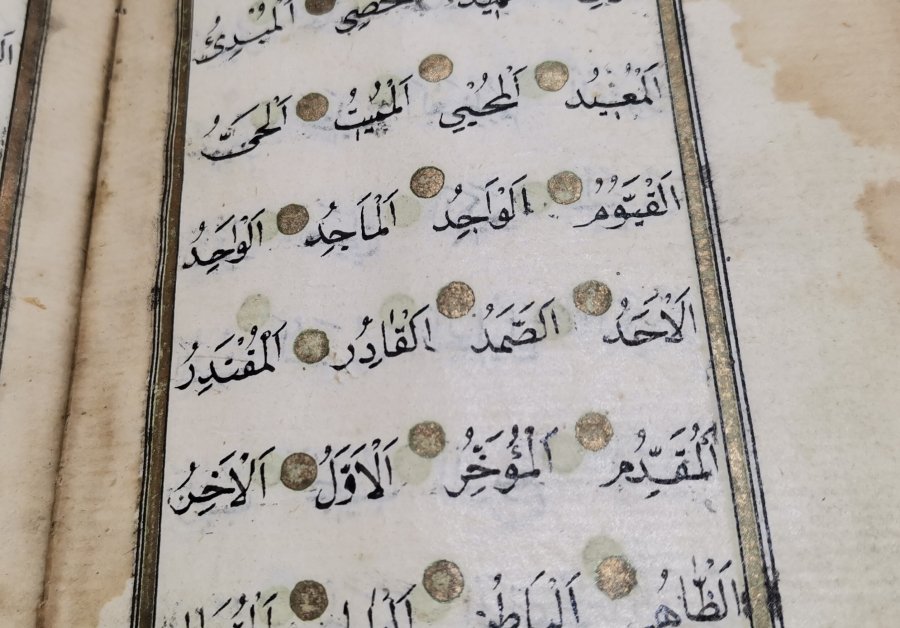 المُحصِي المُبْدِئُ
اَلْمُعِيْدُ اَلْمُحْيِي اَلْمُمِيْتُ اَلْحَىُّ
اَلْقَيُّوْمُ اَلْوَاجِدُ اَلْمَاجِدُ اَلْوَاحِدُ
اَلْاَحَدُ اَلصَّمَدُ اَلْقَادِرُ اَلْمُقْتَدِرُ
اَلْمُقَدِّمُ اَلْمُؤَخِّرُ اَلْاَوَّلُ اَلْاٰخِرُ
اَلظَّاهِرُ اَلْبَاطِنُ